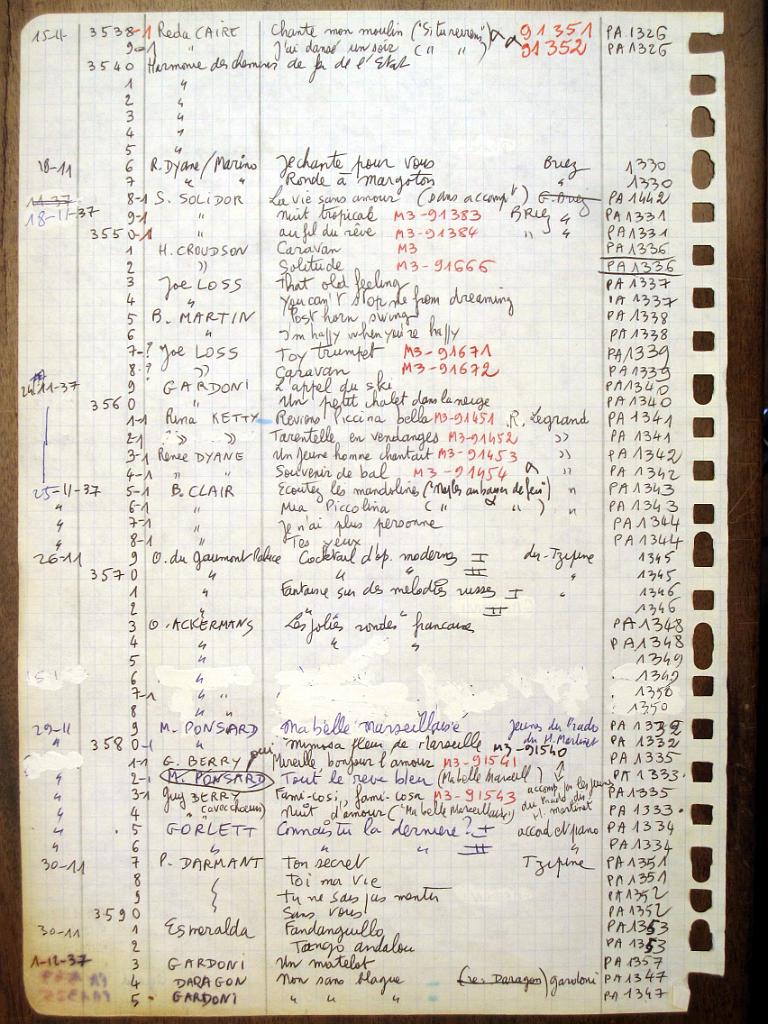 15-11 3538-1 Reda CAIRE Chante mon moulin ("Si tu reviens") 91351 PA.1326
9-1 " J'ai dansé un soir ( " " ) 91352 PA1326
3540 Harmonie des chemins de fer de l'Etat
1 "
2 "
3 "
4 "
5 "
18-11 6 R. Dyane/Marino Je chante pour vous Briez 1330
7 " " Ronde à Margoton " 1330
11-37 8-1 S. SOLIDOR La vie sans amour (sans accompt) PA1442
18-11-37 9-1 " nuit tropicale M3-91383 " PA1331
3550-1 " au fil du rêve M3-91384 " " PA1331
1 H. CROUDSON Caravan M3 PA1336
2 " Solitude M3-91666 PA1336
3 Joe LOSS That old feeling PA1337
4 " You can't stop me from dreaming PA1337
5 B. MARTIN Post horn swing PA1338
6 " I'm happy when you're happy PA1338
7-? Joe LOSS Toy trumpet M3-91671 PA1339
8-? " Caravan M3-91672 PA1339
24-11-37 9 GARDONI L'appel du ski PA1340
3560 " Un petit chalet dans la neige PA1340
1-1 Rina KETTY Reviens Piccina bella M3-91451 R. Legrand PA1341
2-1 " " Tarentelle en vendanges M3-91452 " PA1341
3-1 Renée DYANE Un jeune homme chantait M3-91453 " PA1342
4-1 " " Souvenir de bal M3-91454 " PA1342
25-11-37 5-1 B. CLAIR Ecoutez les mandolines " PA1343
" 6-1 " Mia Piccolina ( " " ) " PA1343
" 7-1 " Je n'ai plus personne PA1344
" 8-1 " Tes yeux PA1344
26-11 9 O. du Gaumont Palace Cocktail d'op. modernes I dir-Tzipine 1345
3570 " " II " 1345
1 " Fantaisie sur des mélodies russes I " 1346
2 " " II 1346
3 O. ACKERMANS Les jolies rondes françaises PA1348
4 " " " PA1348
5 " 1349
6 " 1349
7-1 " " 1350
8 " " 1350
29-11 9 M. PONSARD Ma belle marseillaise Jeunes du Prado PA1332
" 3580-1 " Mimosa fleur de Marseille M3-91540 du H. Martinet PA1332
1-1 G. BERRY Mireille bonjour l'amour M3-91541 PA1335
" 2-1 M. PONSARD oui Tout le rêve bleu (Ma belle Marseill.) accomp. par les jeunes du Prado dir. H. Martinet PA1333.
" 3-1 Guy BERRY Fami-cosi, fami-cosa M3-91543 PA1335
" 4 " (avec choeurs) Nuit d'amour ("Ma belle Marseillaise") PA1333.
" 5 GORLETT Connais tu la dernière? I accord et piano PA1334
" 6 " " " II " PA1334
30-11 7 P. DARMANT Ton secret Tzipine PA1351
8 Toi ma vie PA1351
9 Tu ne sais pas mentir PA1352
3590 Sans vous PA1352
30-11 1 Esmeralda Fandanguillo PA1353
2 Tango andalou PA1353
1-12-37 3 GARDONI Un matelot PA1357
4 DARAGON Non sans blague (re. Daragon) gardoni PA1347
5 GARDONI " " " PA1347